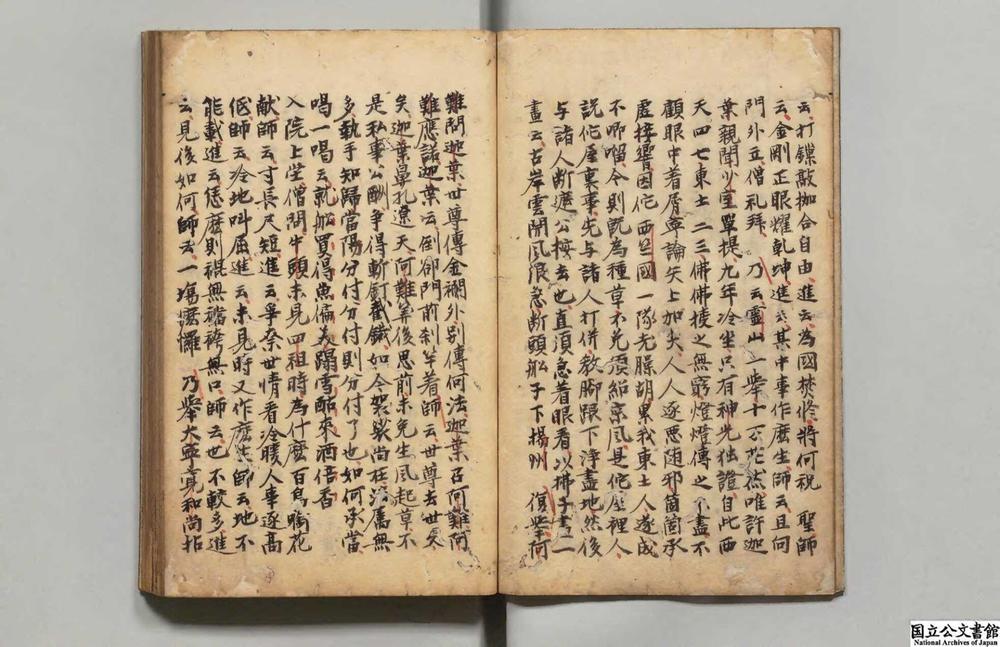 云打鏁敲枷合自由進云為國焚修將何祝 聖師
云金剛正眼耀乾坤進云其中事作麽生師云且向
門外立僧礼拜 乃云靈山一舉十万茫然唯許迦
葉親聞少室單提九年冷坐只有神光独證自此西
天四七東土二三佛佛授之無窮燈燈傳之不盡不
顧眼中着屑寧論矢上加尖人人逐悪随邪箇箇承
虚接響因佗西竺國一隊无臊胡累我東土人遂成
不唧𠺕今則既為種草不免須紹宗風是佗屋裡人
説佗屋裏事先与諸人打併教脚跟下淨盡地然後
与諸人断遞公按去也直須急着眼看以拂子畫一
畫云古岸雲開風浪急断頭舩子下揚州 復舉阿
難問迦葉世尊傳金襴外別傳何法迦葉召阿難阿
難應諾迦葉云倒卻門前刹竿着師云世尊去世久
矣迦葉鼻孔遼天阿難筭後思前未免生風起草不
是私事公酬争得斬釘截鐵如今袈裟尚在法属無
多執手知歸當陽分付分付則分付了也如何承當
喝一喝云就舩買得魚偏美蹋雪酤來酒倍香
入院上堂僧問牛頭未見四祖時為什麽百鳥㘅花
献師云寸長尺短進云爭奈世情看冷暖人事逐高
低師云冷地叫屈進云未見時又作麽生師云地不
能載進云恁麽則裩無襠袴無口師云也不較多進
云見後如何師云一塲麽㦬 乃舉大亟寛和尚拈
国立公文書館
National Archives of Japan